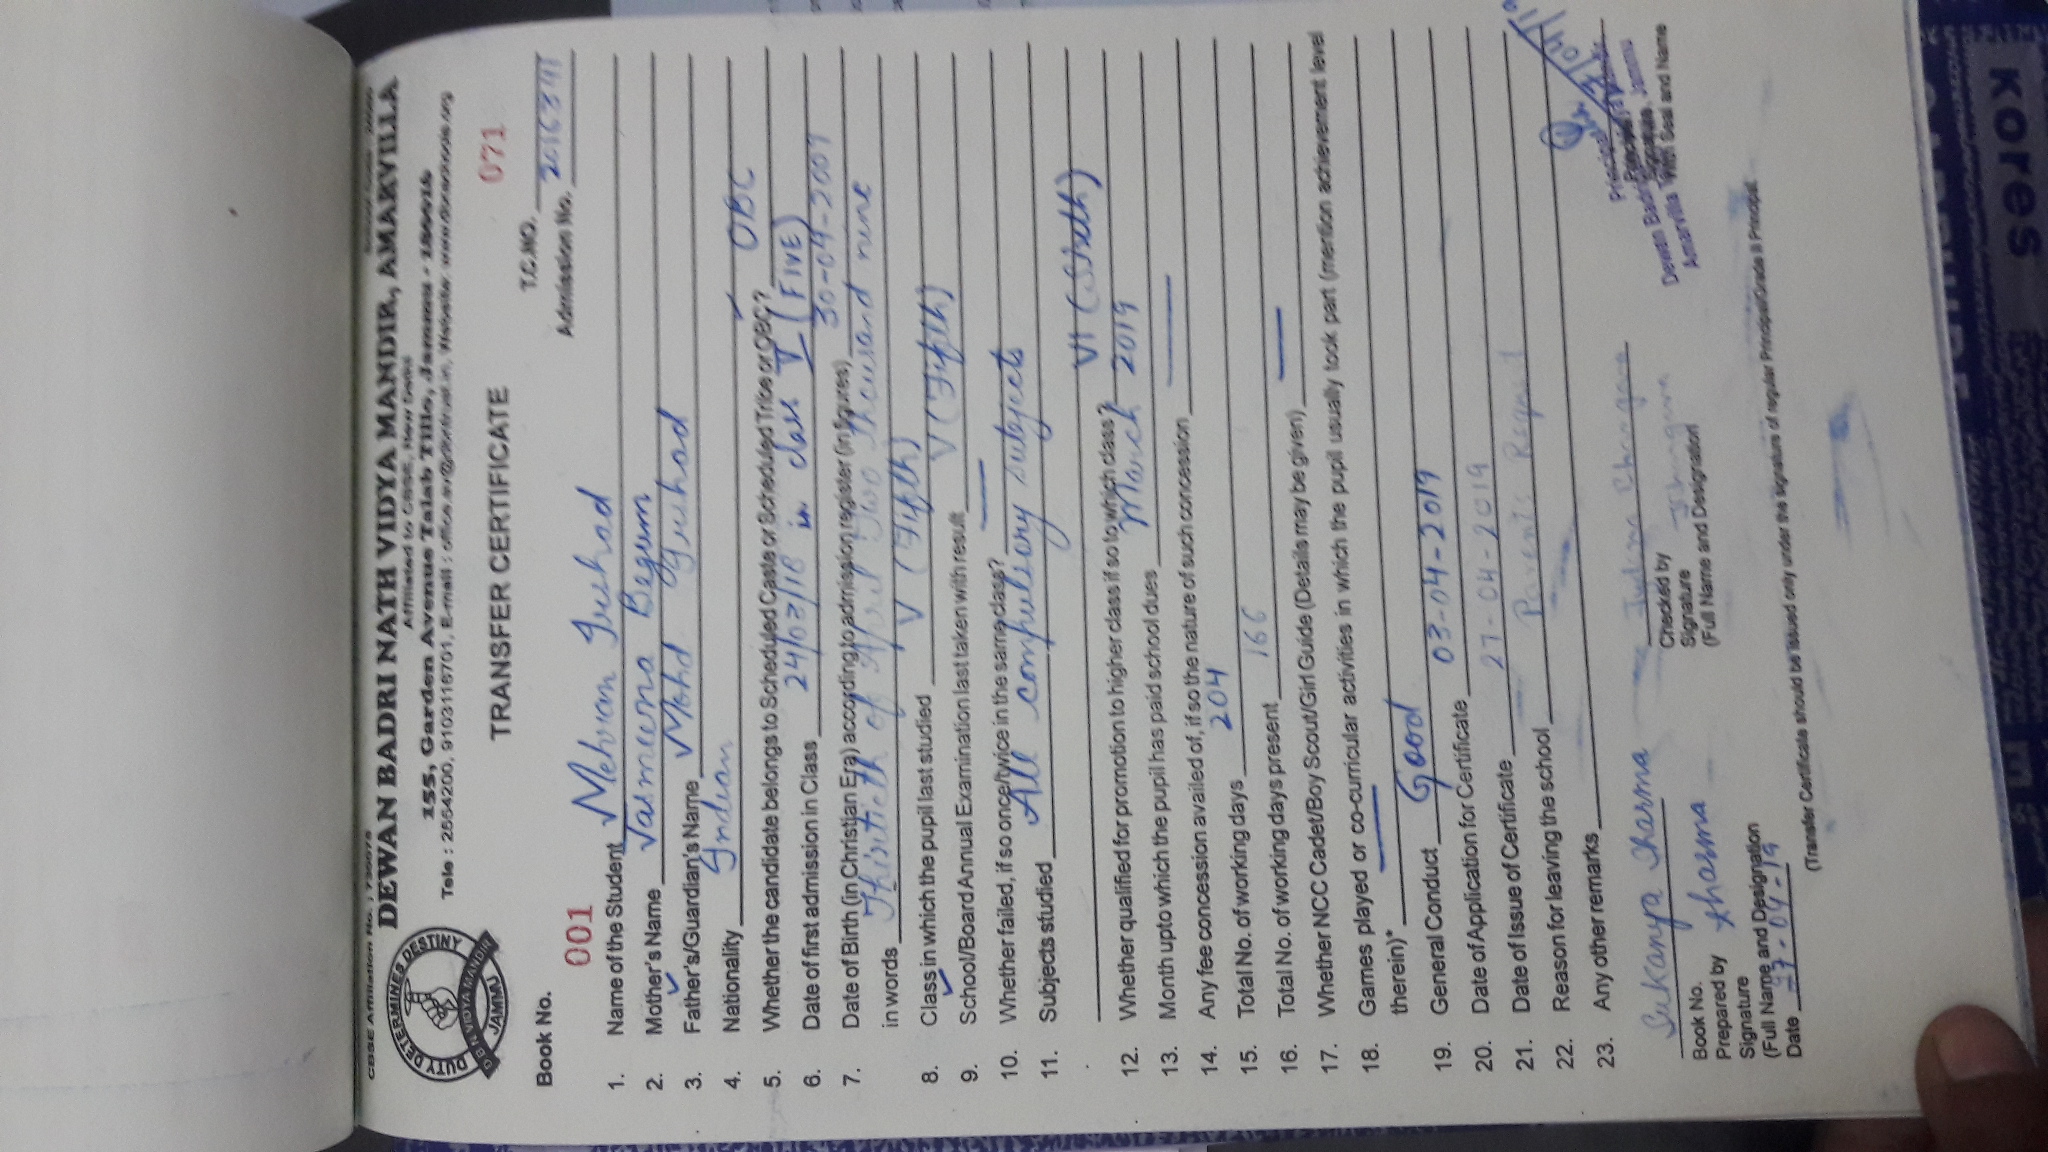 CBSE Affiliation No. : 730075
DEWAN BADRI NATH VIDYA MANDIR, AMARVILLA
Affiliated to CBSE, New Delhi
155, Garden Avenue Talab Tillo, Jammu - 180016
DUTY DETERMINES DESTINY
D.B.N VIDYA MANDIR
JAMMU
TRANSFER CERTIFICATE
Book No. 001
T.C.NO. 071
Admission No.
1. Name of the Student Mehran Irshad
2. Mother's Name Yasmeena Begum
3. Father's/Guardian's Name Mohd Irshad
4. Nationality Indian
5. Whether the candidate belongs to Scheduled Caste or Scheduled Tribe or OBC? OBC
6. Date of first admission in Class 24/03/18 in class V (FIVE)
7. Date of Birth (in Christian Era) according to admission register (in figures) 30-04-2009
in words Thirtieth of April Two thousand nine
8. Class in which the pupil last studied V (Fifth)
9. School/Board Annual Examination last taken with result V (Fifth)
10. Whether failed, if so once/twice in the same class? —
11. Subjects studied All compulsory subjects
12. Whether qualified for promotion to higher class if so to which class? VI (Sixth)
13. Month upto which the pupil has paid school dues March 2019
14. Any fee concession availed of, if so the nature of such concession —
15. Total No. of working days 204
16. Total No. of working days present 166
17. Whether NCC Cadet/Boy Scout/Girl Guide (Details may be given) —
18. Games played or co-curricular activities in which the pupil usually took part (mention achievement level
therein)* —
19. General Conduct Good
20. Date of Application for Certificate 03-04-2019
21. Date of Issue of Certificate 27-04-2019
22. Reason for leaving the school Parents Request
23. Any other remarks
Sukanya Sharma
Book No.
Prepared by Sharma
Signature
(Full Name and Designation
Date 27-04-19
Checked by
Signature
(Full Name and Designation
Principal
Dewan Badri
Amarvilla
Jammu
With Seal and Name
(Transfer Certificate should be issued only under the signature of regular Principal/Grade II Principal
kores